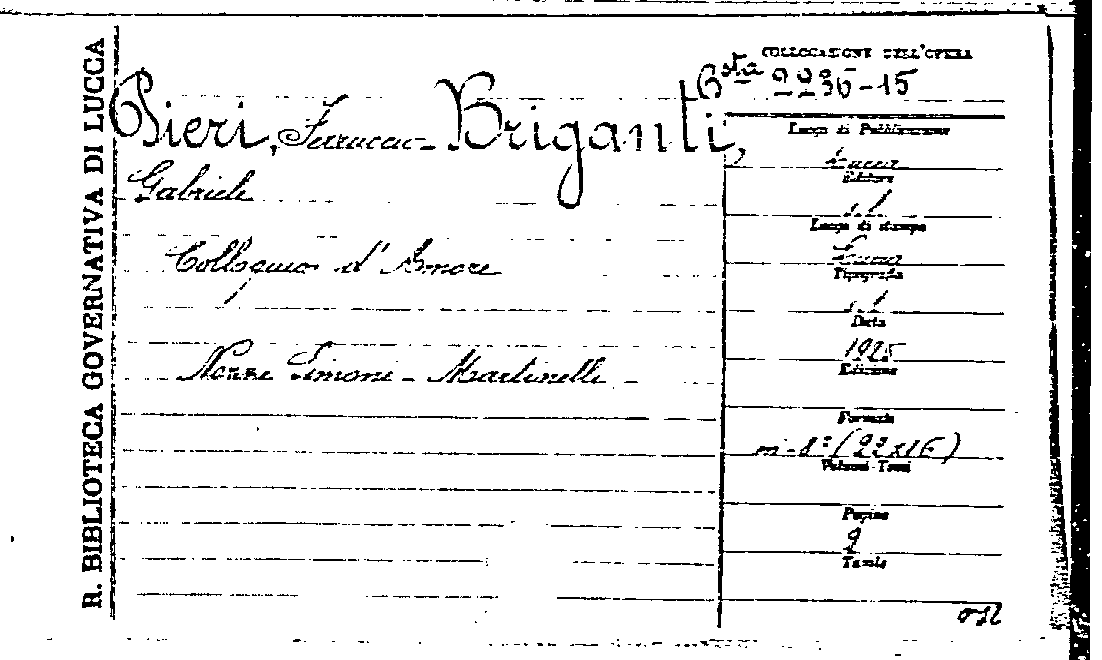 R. BIBLIOTECA GOVERNATIVA DI LUCCA
COLLOCAZIONE DELL'OPERA
Bsta 2236-15
Pieri, Ferruccio - Briganti,
Gabriele
Colloquio d'Amore
Nozze Simoni - Martinelli
Luogo di Pubblicazione
Lucca
Editore
s.l.
Luogo di stampa
Lucca
Tipografia
s.l.
Data
1925
Edizione
Formato
in-8° (22x16)
Volumi-Tomi
Pagine
9
Tavole